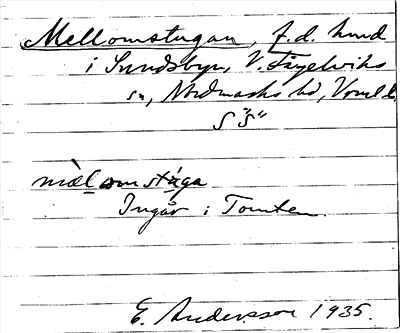 Mellomstugan, f.d. hmd
i Sundsbyn, V. Fågelviks
sn, Nordmarks hd, Värml.
mæl om stúga
Ingår i Tomten.
E. Andersson 1935.